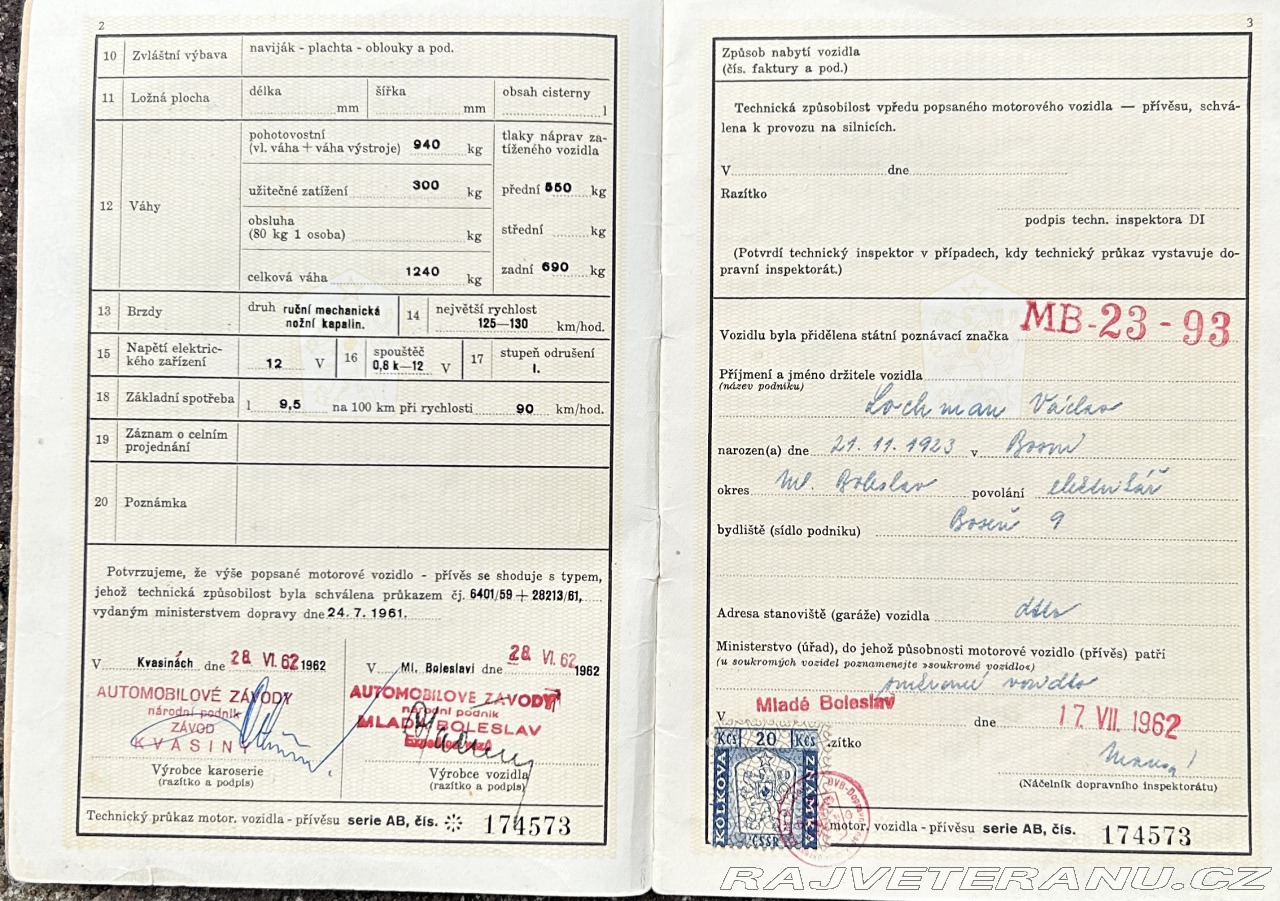 2
10 Zvláštní výbava naviják - plachta - oblouky a pod.
11 Ložná plocha délka mm šířka mm obsah cisterny l
12 Váhy
pohotovostní
(vl. váha + váha výstroje) 940 kg
užitečné zatížení 300 kg
obsluha
(80 kg 1 osoba) kg
celková váha 1240 kg
tlaky náprav za-
tíženého vozidla
přední 550 kg
střední kg
zadní 690 kg
13 Brzdy druh ruční mechanická
nožní kapalin.
14 největší rychlost
125—130 km/hod.
15 Napětí elektric-
kého zařízení 12 V
16 spouštěč
0,8 k—12 V
17 stupeň odrušení
I.
18 Základní spotřeba l 9,5 na 100 km při rychlosti 90 km/hod.
19 Záznam o celním
projednání
20 Poznámka
Potvrzujeme, že výše popsané motorové vozidlo - přívěs se shoduje s typem,
jehož technická způsobilost byla schválena průkazem čj. 6401/59 + 28213/61,
vydaným ministerstvem dopravy dne 24. 7. 1961.
V Kvasinách dne 28 VI. 62 1962
AUTOMOBILOVÉ ZÁVODY
národní podnik
ZÁVOD
KVASINY
Výrobce karoserie
(razítko a podpis)
V Ml. Boleslavi dne 28 VI. 62 1962
AUTOMOBILOVÉ ZÁVODY
národní podnik
MLADÁ BOLESLAV
Výrobce vozidla
(razítko a podpis)
Technický průkaz motor. vozidla - přívěsu serie AB, čís. 174573
3
Způsob nabytí vozidla
(čís. faktury a pod.)
Technická způsobilost vpředu popsaného motorového vozidla — přívěsu, schvá-
lena k provozu na silnicích.
V dne
Razítko
podpis techn. inspektora DI
(Potvrdí technický inspektor v případech, kdy technický průkaz vystavuje do-
pravní inspektorát.)
Vozidlu byla přidělena státní poznávací značka MB-23-93
Příjmení a jméno držitele vozidla
(název podniku)
Lochman Václav
narozen(a) dne 21. 11. 1923 v Boseni
okres Ml. Boleslav povolání elektrikář
bydliště (sídlo podniku) Boseň 9
Adresa stanoviště (garáže) vozidla dtto
Ministerstvo (úřad), do jehož působnosti motorové vozidlo (přívěs) patří
(u soukromých vozidel poznamenejte »soukromé vozidlo«)
vozidlo
V Mladé Boleslav dne 17. VII. 1962
Kčs 20 Kčs
KOLKOVÁ
ZNÁMKA
ČSSR
zítko
(Náčelník dopravního inspektorátu)
motor. vozidla - přívěsu serie AB, čís. 174573
RAJVETERANU.CZ